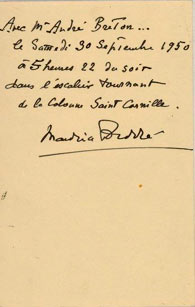 Avec Mr André Breton...
le Samedi 30 Septembre 1950
à 5 heures 22 du soir
dans l'escalier tournant
de la Colonne Saint Cornille.